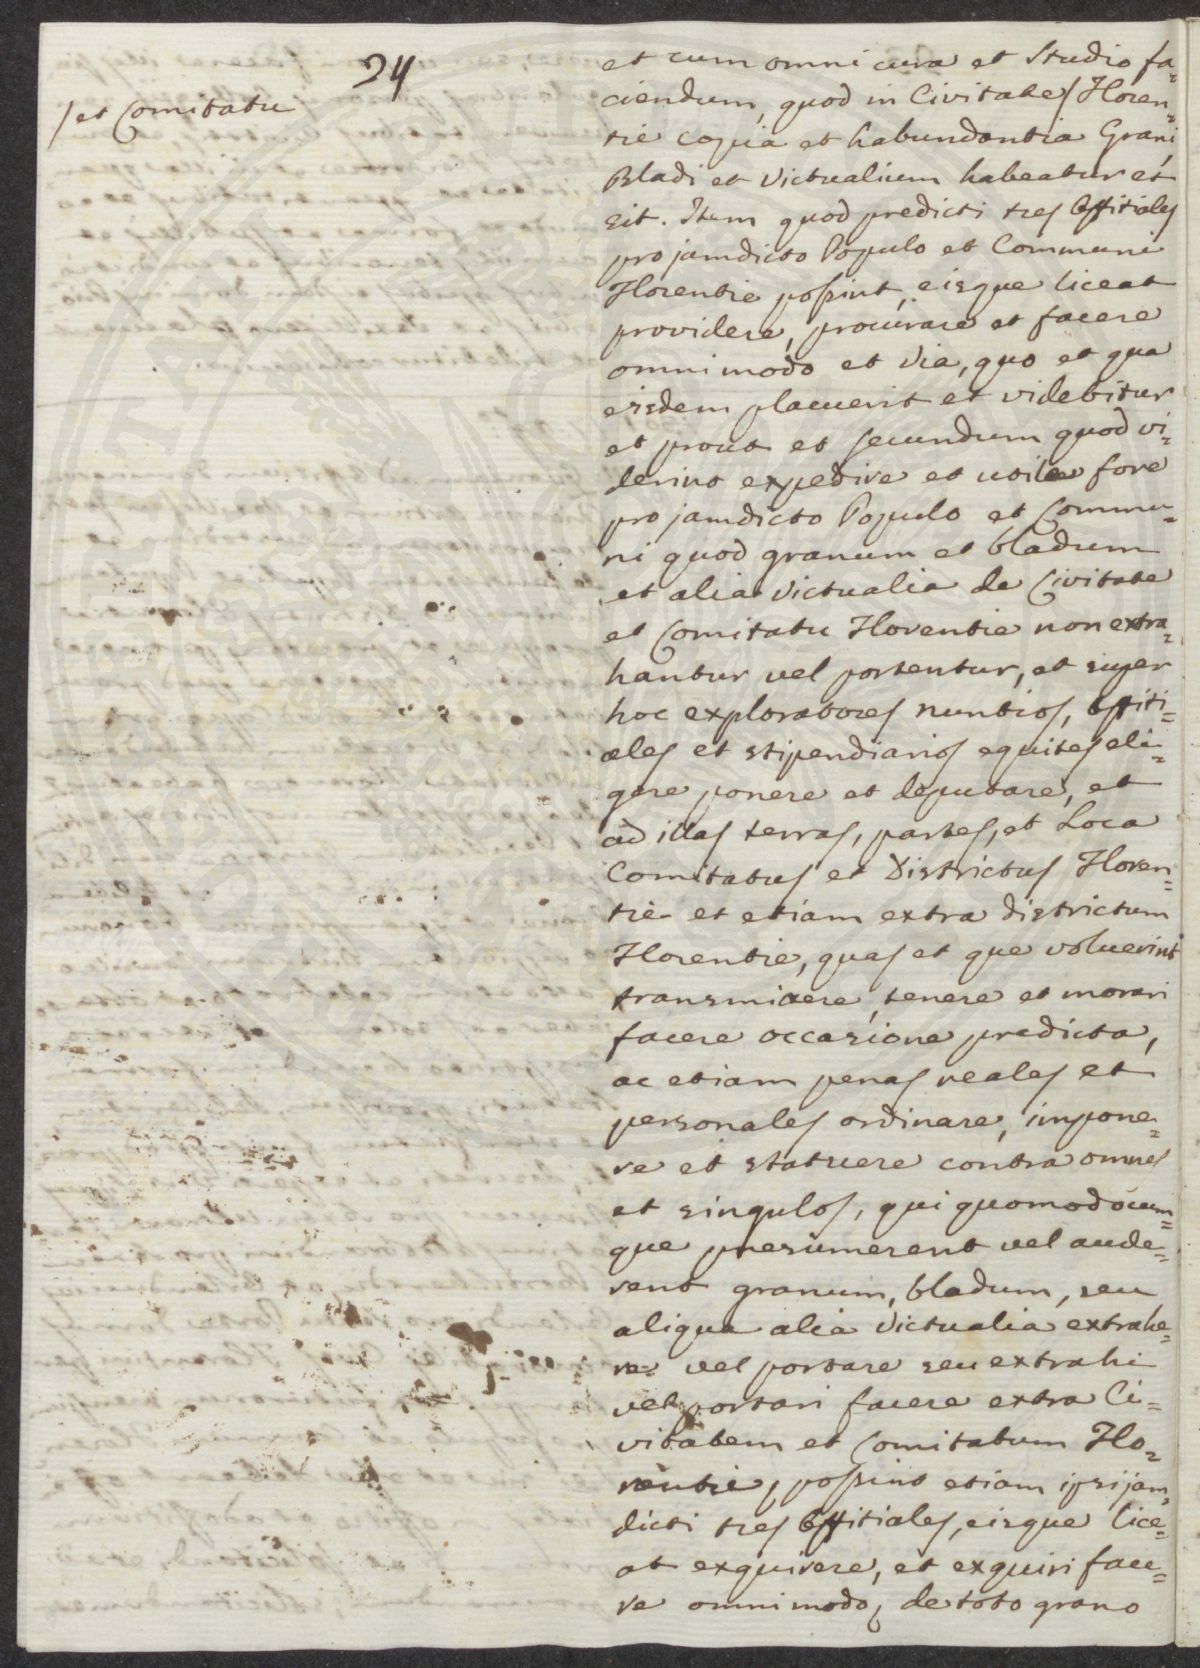 24
/ et Comitatu
et cum omni cura et Studio fa=
ciendum, quod in Civitate / Floren=
tie copia et habundantia Grani
Bladi et Victualium habeatur et
sit. Item quod predicti tres Offitiales
pro jamdicto Populo et Communi
Florentie possint, eisque liceat
providere, procurare et facere
omni modo et via, quo et qua
eisdem placuerit et videbitur
et prout et secundum quod vi=
derint expedire et utile fore
pro jamdicto Populo et Commu=
ni quod granum et bladum
et alia Victualia de Civitate
et Comitatu Florentie non extra=
hantur vel portentur, et super
hoc exploratores nuntios, Offiti=
ales et stipendiarios equites eli=
gere ponere et deputare, et
ad illas terras, partes, et Loca
Comitatus et Districtus Floren=
tie et etiam extra districtum
Florentie, quas et que voluerint
transmictere, tenere et morari
facere occasione predicta,
ac etiam penas reales et
personales ordinare, impone=
re et statuere contra omnes
et singulos, qui quomodocum=
que presumerent vel aude=
rent granum, bladum, seu
aliqua alia Victualia extrahe=
re vel portare seu extrahi
vel portari facere extra Ci=
vitatem et Comitatum Flo=
rentie, possint etiam ipsi jam=
dicti tres Offitiales, eisque lice=
at exquirere, et exquiri face=
re omni modo, de toto grano